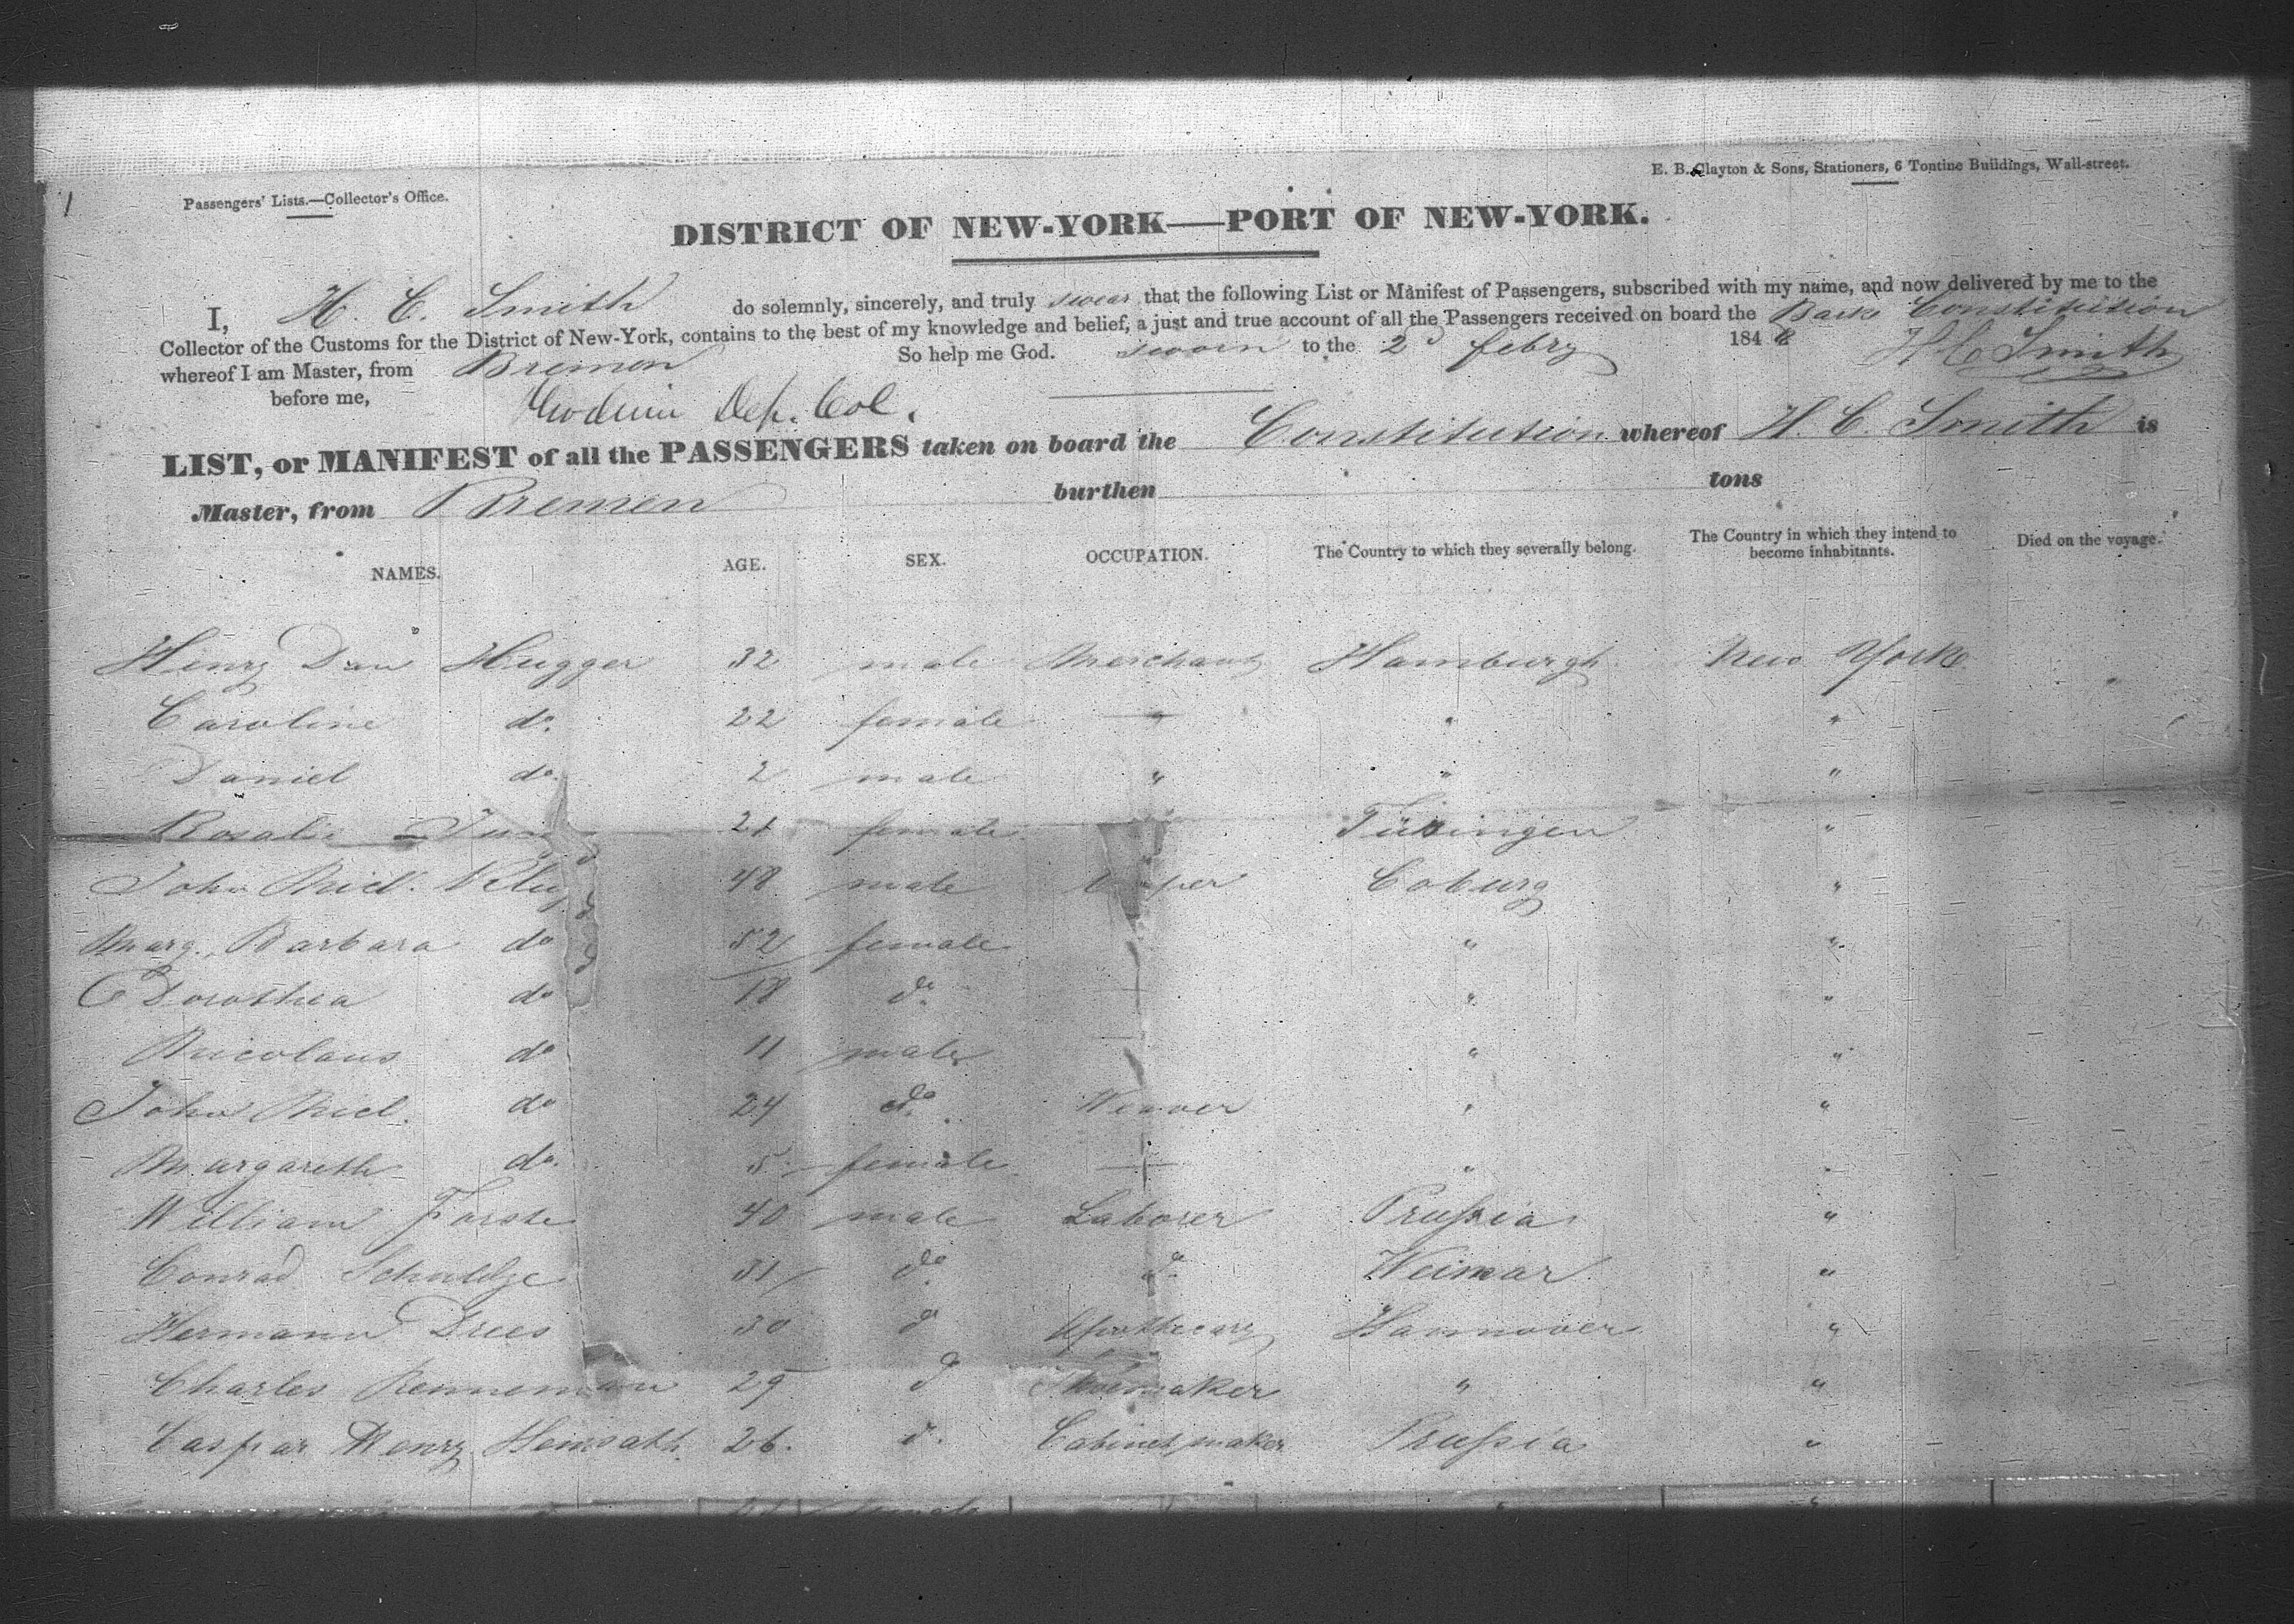 1
Passengers' Lists.—Collector's Office.
E. B. Clayton & Sons, Stationers, 6 Tontine Buildings, Wall-street.
DISTRICT OF NEW-YORK—PORT OF NEW-YORK.
I, H. C. Smith do solemnly, sincerely, and truly swear that the following List or Manifest of Passengers, subscribed with my name, and now delivered by me to the
Collector of the Customs for the District of New-York, contains to the best of my knowledge and belief, a just and true account of all the Passengers received on board the Bark Constitution
whereof I am Master, from Bremen So help me God. sworn to the 2d febry 1848 H C Smith
before me, Dep. Col.
LIST, or MANIFEST of all the PASSENGERS taken on board the Constitution whereof H. C. Smith is
Master, from Bremen burthen tons
NAMES. AGE. SEX. OCCUPATION. The Country to which they severally belong. The Country in which they intend to become inhabitants. Died on the voyage.
Henry Dan Hugger 32 male Merchant Hamburgh New York "
Caroline do. 22 female " " "
Daniel do. 2 male " " "
Rosalie 21 female "
John Nicl. 48 male Cooper Coburg "
Marg. Barbara do 52 female " "
Dorothea do 18 do " "
Nicolaus do 11 male " "
John Nicl. do 24 do. Weaver " "
Margareth do. 5 female — " "
William 40 male Laborer Prussia "
Conrad Schuldze 31 do. do. Weimar "
Hermann Drees 30 d Apothecary Hannover "
Charles Rennemann 29 d Shoemaker " "
Caspar Henry Heinsath 26. d. Cabinetmaker Prussia "
female " "